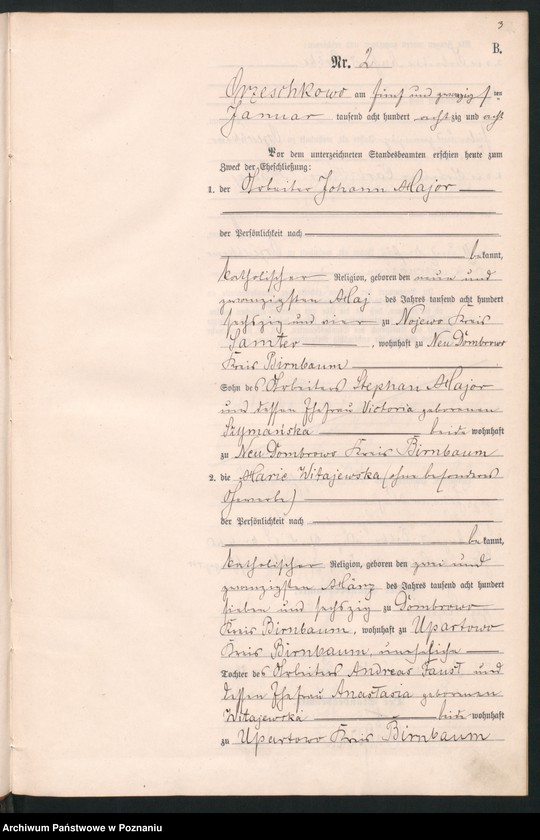 3
B.
Nr. 2
Orzeschkowo am fünf und zwanzigsten
Januar tausend acht hundert achtzig und acht
Vor dem unterzeichneten Standesbeamten erschien heute zum
Zweck der Eheschließung:
1. der Arbeiter Johann Major
der Persönlichkeit nach
bekannt,
katholischer Religion, geboren den neun und
zwanzigsten Maj des Jahres tausend acht hundert
sechszig und vier zu Nojewo Kreis
Samter, wohnhaft zu Neu Dombrowo
Kreis Birnbaum
Sohn des Arbeiters Stephan Major
und dessen Ehefrau Victoria geborenen
Szymańska beide wohnhaft
zu Neu Dombrowo Kreis Birnbaum
2. die Marie Witajewska (ohne besonderes
Gewerbe)
der Persönlichkeit nach
bekannt,
katholischer Religion, geboren den zwei und
zwanzigsten März des Jahres tausend acht hundert
sieben und sechszig zu Dombrowo
Kreis Birnbaum, wohnhaft zu Upartowo
Kreis Birnbaum, uneheliche
Tochter des Arbeiters Andreas Faust und
dessen Ehefrau Anastasia geborenen
Witajewska beide wohnhaft
zu Upartowo Kreis Birnbaum
Archiwum Państwowe w Poznaniu